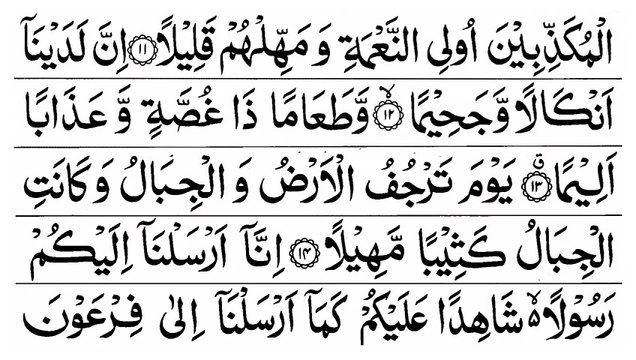 الْمُكَذِّبِيْنَ اُولِي النَّعْمَةِ وَ مَهِّلْهُمْ قَلِيْلًا ۝۱۱ اِنَّ لَدَيْنَاۤ
اَنْكَالًا وَّجَحِيْمًا ۝۱۲ۙ وَّطَعَامًا ذَا غُصَّةٍ وَّ عَذَابًا
اَلِيْمًا ۝۱۳ۗ يَوْمَ تَرْجُفُ الْاَرْضُ وَ الْجِبَالُ وَ كَانَتِ
الْجِبَالُ كَثِيْبًا مَّهِيْلًا ۝۱۴ اِنَّاۤ اَرْسَلْنَاۤ اِلَيْكُمْ
رَسُوْلًا ۙ۬ شَاهِدًا عَلَيْكُمْ كَمَاۤ اَرْسَلْنَاۤ اِلٰى فِرْعَوْنَ